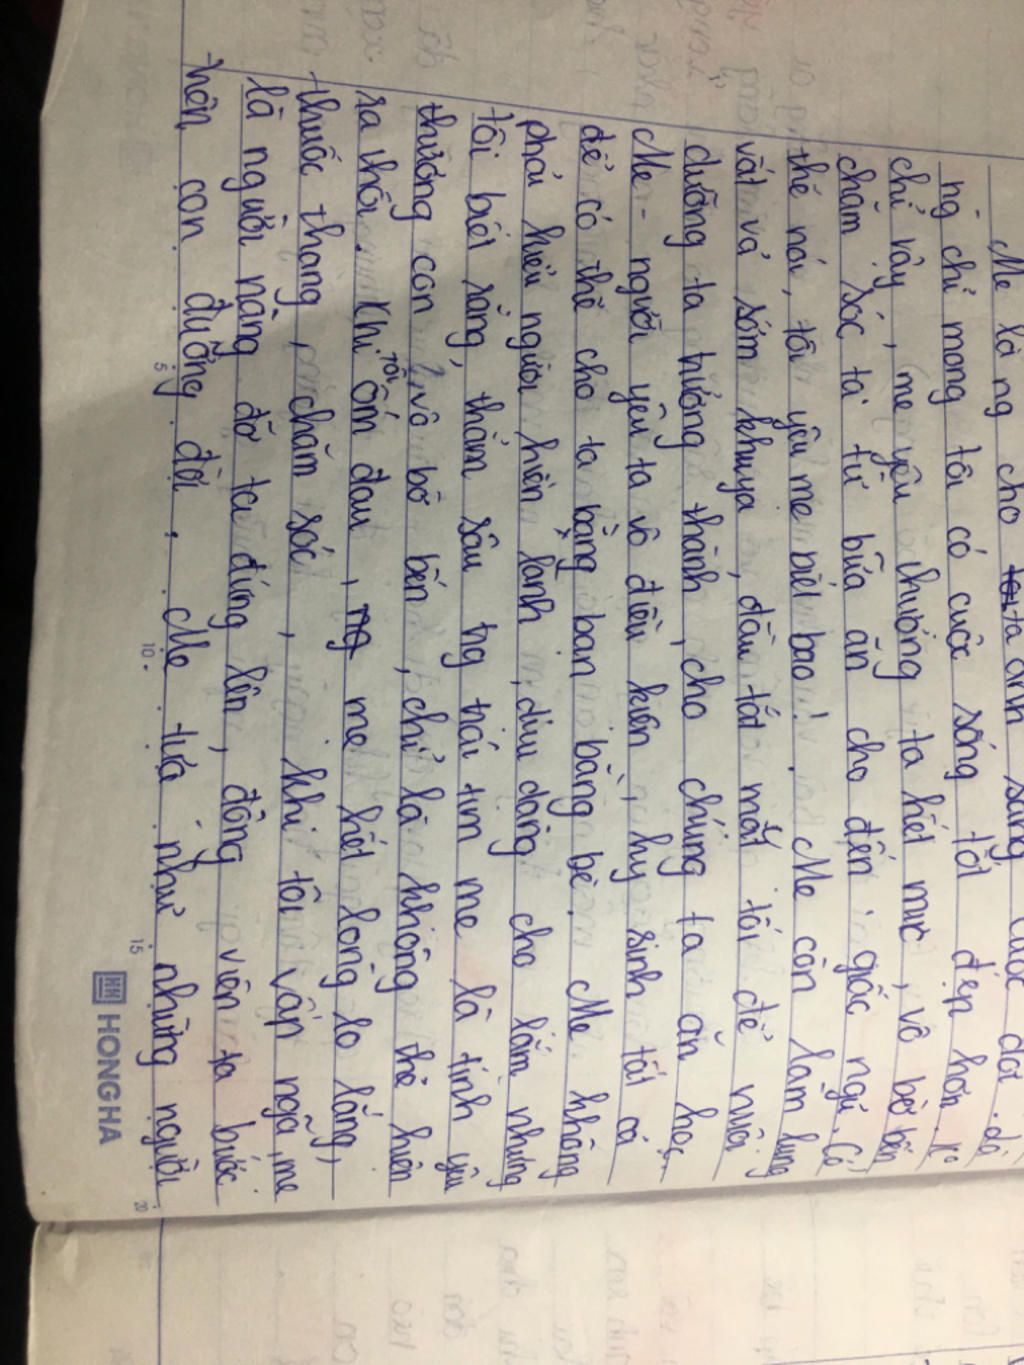 Mẹ là ng cho ta ánh sáng cuộc đời. Là
ng chỉ mong tôi có cuộc sống tốt đẹp hơn. Ko
chỉ vậy, mẹ yêu thương ta hết mực, vô bờ bến
chăm sóc ta từ bữa ăn cho đến giấc ngủ. Có
thể nói, tôi yêu mẹ biết bao! Mẹ còn làm lụng
vất vả sớm khuya, đầu tắt mặt tối để nuôi
dưỡng ta trưởng thành, cho chúng ta ăn học.
Mẹ - người yêu ta vô điều kiện, hy sinh tất cả
để có thể cho ta bằng bạn bằng bè. Mẹ không
phải kiểu người hiền lành, dịu dàng cho lắm nhưng
tôi biết rằng, thẳm sâu trg trái tim mẹ là tình yêu
thương con vô bờ bến, chỉ là không thể hiện
ra thôi. Khi tôi ốm đau, mẹ hết lòng lo lắng,
thuốc thang, chăm sóc, khi tôi vấp ngã, mẹ
là người nâng đỡ ta đứng lên, động viên ta bước
trên con đường đời. Mẹ tựa như những người
5 10 15 20
HONG HA